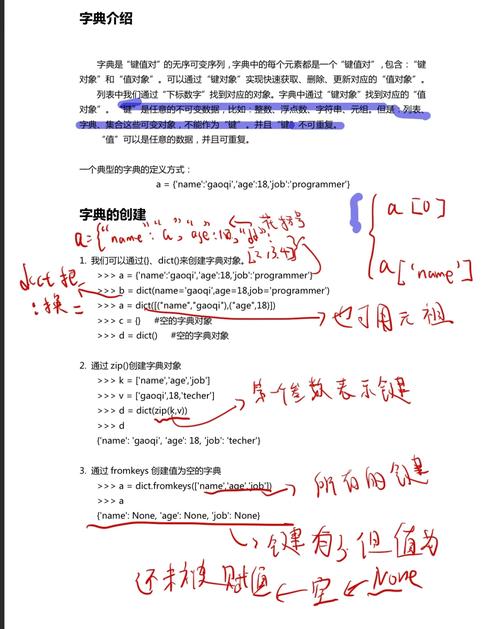 字典介绍
字典是“键值对”的无序可变序列,字典中的每个元素都是一个“键值对”,包含:“键
对象”和“值对象”。可以通过“键对象”实现快速获取、删除、更新对应的“值对象”。
列表中我们通过“下标数字”找到对应的对象。字典中通过“键对象”找到对应的“值
对象”。“键”是任意的不可变数据,比如:整数、浮点数、字符串、元组。但是:列表、
字典、集合这些可变对象,不能作为“键”。并且“键”不可重复。
“值”可以是任意的数据,并且可重复。
一个典型的字典的定义方式:
a = {'name':'gaoqi','age':18,'job':'programmer'}
a[0]
a['name']
字典的创建
花括号
a={"name":"a","age":18,"dd":
[2,3,4]}
1. 我们可以通过{}、dict()来创建字典对象。
>>> a = {'name':'gaoqi','age':18,'job':'programmer'}
>>> b = dict(name='gaoqi',age=18,job='programmer')
>>> a = dict([("name","gaoqi"),("age",18)])
>>> c = {} #空的字典对象
>>> d = dict() #空的字典对象
dict把
:换=
也可用元祖
2. 通过 zip()创建字典对象
>>> k = ['name','age','job']
>>> v = ['gaoqi',18,'techer']
>>> d = dict(zip(k,v))
>>> d
{'name': 'gaoqi', 'age': 18, 'job': 'techer'}
第一个参数表示键
3. 通过 fromkeys 创建值为空的字典
>>> a = dict.fromkeys(['name','age','job'])
>>> a
{'name': None, 'age': None, 'job': None}
所有的键
键有了但值为
None
空
还未被赋值